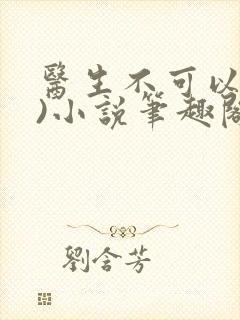 醫生不可以
)小說筆趣閣
劉含芳